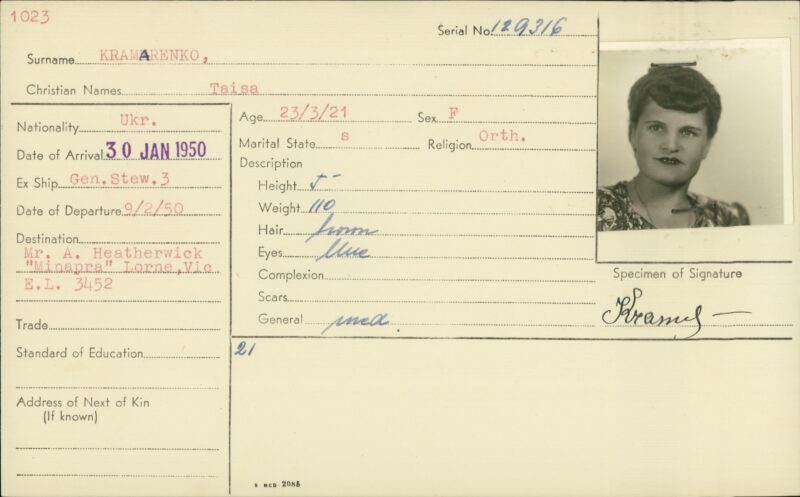 1023
Serial No. 129316
Surname KRAMARENKO,
Christian Names Taisa
Nationality Ukr.
Date of Arrival 30 JAN 1950
Ex Ship Gen.Stew.3
Date of Departure 9/2/50
Destination
Mr. A. Heatherwick
"Minapra" Lorne,Vic
E.L. 3452
Trade
Standard of Education
Address of Next of Kin
(If known)
Age 23/3/21 Sex F
Marital State s Religion Orth.
Description
Height 5-
Weight 110
Hair brown
Eyes blue
Complexion
Scars
General med.
21
Specimen of Signature
9 MCD 2085